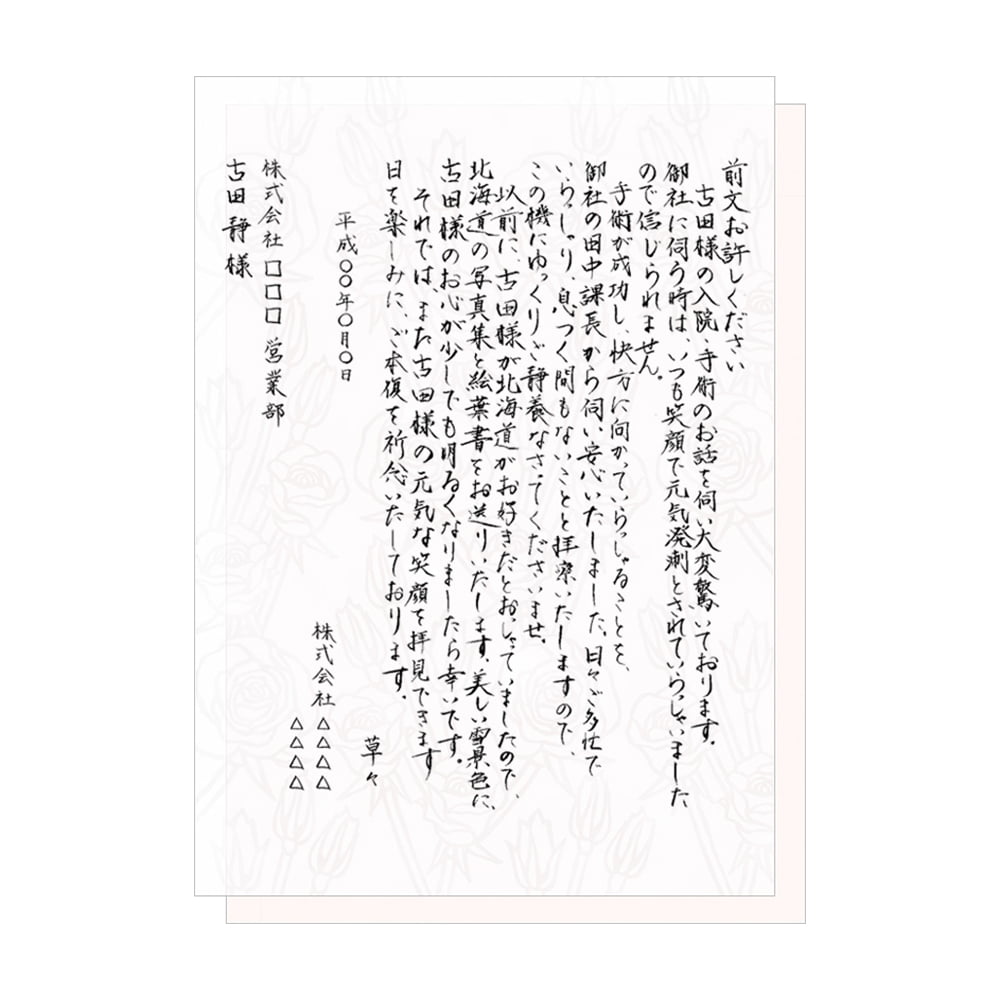 前文お許しください
古田様の入院・手術のお話を伺い大変驚いております。
御社に伺う時は、いつも笑顔で元気溌剌とされていらっしゃいました
ので信じられません。
手術が成功し、快方に向かっていらっしゃることを、
御社の田中課長から伺い安心いたしました。日々ご多忙で
いらっしゃり、息つく間もないことと拝察いたしますので、
この機にゆっくりご静養なさってくださいませ。
以前に、古田様が北海道がお好きだとおっしゃっていましたので、
北海道の写真集と絵葉書をお送りいたします。美しい雪景色に、
古田様のお心が少しでも明るくなりましたら幸いです。
それでは、また古田様の元気な笑顔を拝見できます
日を楽しみに、ご本復を祈念いたしております。
草々
平成〇〇年〇月〇日
株式会社△△△△
△△△△
株式会社□□□営業部
古田静様